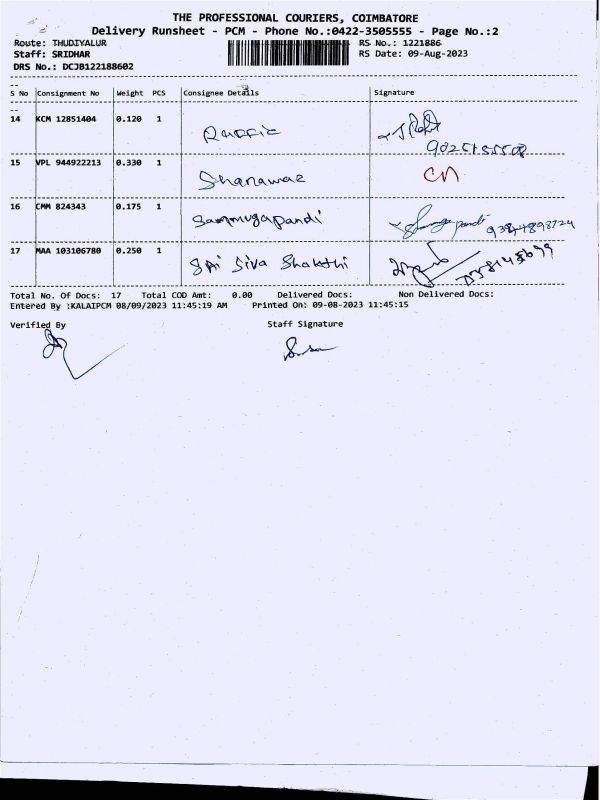 THE PROFESSIONAL COURIERS, COIMBATORE
Delivery Runsheet - PCM - Phone No.:0422-3505555 - Page No.:2
Route: THUDIYALUR RS No.: 1221886
Staff: SRIDHAR RS Date: 09-Aug-2023
DRS No.: DCJB122188602
S No Consignment No Weight PCS Consignee Details Signature
14 KCM 12851404 0.120 1
15 VPL 944922213 0.330 1 Shanawaz CN
16 CMM 824343 0.175 1 Sammugapandi
17 MAA 103106780 0.250 1 SAi Siva Shakthi
Total No. Of Docs: 17 Total COD Amt: 0.00 Delivered Docs: Non Delivered Docs:
Entered By :KALAIPCM 08/09/2023 11:45:19 AM Printed On: 09-08-2023 11:45:15
Verified By Staff Signature